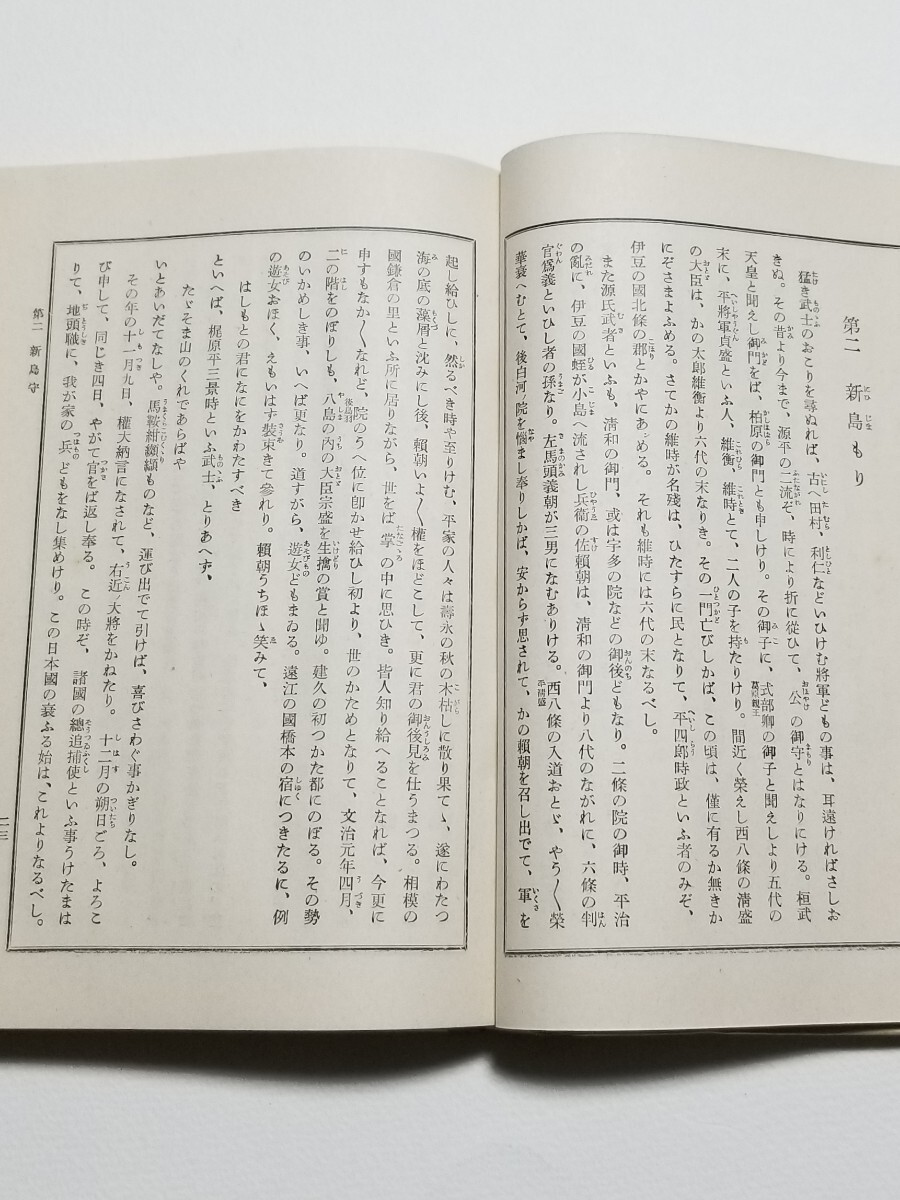 第二　新島もり
猛き武士のおこりを尋ぬれば、古へ田村、利仁などいひけむ將軍どもの事は、耳遠ければさしお
きぬ。その昔より今まで、源平の二流ぞ、時により折に從ひて、公の御守とはなりにける。桓武
天皇と聞えし御門をば、柏原の御門とも申しけり。その御子に、式部卿の御子と聞えしより五代の
末に、平將軍貞盛といふ人、維衡、維時とて、二人の子を持たりけり。間近く榮えし西八條の清盛
の大臣は、かの太郎維衡より六代の末なりき。その一門亡びしかば、この頃は、僅に有るか無きか
にぞさまよふめる。さてかの維時が名殘は、ひたすらに民となりて、平四郎時政といふ者のみぞ、
伊豆の國北條の郡とかやにあンめる。それも維時には六代の末なるべし。
また源氏武者といふも、清和の御門、或は宇多の院などの御後どもなり。二條の院の御時、平治
の亂に、伊豆の國蛭が小島へ流されし兵衞の佐賴朝は、清和の御門より八代のながれに、六條の判
官爲義といひし者の孫なり。左馬頭義朝が三男になむありける。西八條の入道おとゞ、やう〳〵榮
華衰へむとて、後白河ノ院を惱まし奉りしかば、安からず思されて、かの賴朝を召し出でて、軍を
起し給ひしに、然るべき時や至りけむ、平家の人々は壽永の秋の木枯しに散り果てゝ、遂にわたつ
海の底の藻屑と沈みにし後、賴朝いよ〳〵權をほどこして、更に君の御後見を仕うまつる。相模の
國鎌倉の里といふ所に居りながら、世をば掌の中に思ひき。皆人知り給へることなれば、今更に
申すもなか〳〵なれど、院のうへ位に卽かせ給ひし初より、世のかためとなりて、文治元年四月、
二の階をのぼりしも、八島の內の大臣宗盛を生擒の賞と聞ゆ。建久の初つかた都にのぼる。その勢
のいかめしき事、いへば更なり。道すがら、遊女どもまゐる。遠江の國橋本の宿につきたるに、例
の遊女おほく、えもいはず裝束きて參れり。賴朝うちほゝ笑みて、
はしもとの君になにをかわたすべき
といへば、梶原平三景時といふ武士、とりあへず、
たゞそま山のくれであらばや
いとあいだてなしや。馬鞍紺纐纈ものなど、運び出でて引けば、喜びさわぐ事かぎりなし。
その年の十一月九日、權大納言になされて、右近ノ大將をかねたり。十二月の朔日ごろ、よろこ
び申して、同じき四日、やがて官をば返し奉る。この時ぞ、諸國の總追捕使といふ事うけたまは
りて、地頭職に、我が家の兵どもをなし集めけり。この日本國の衰ふる始は、これよりなるべし。
第二　新島守
二三